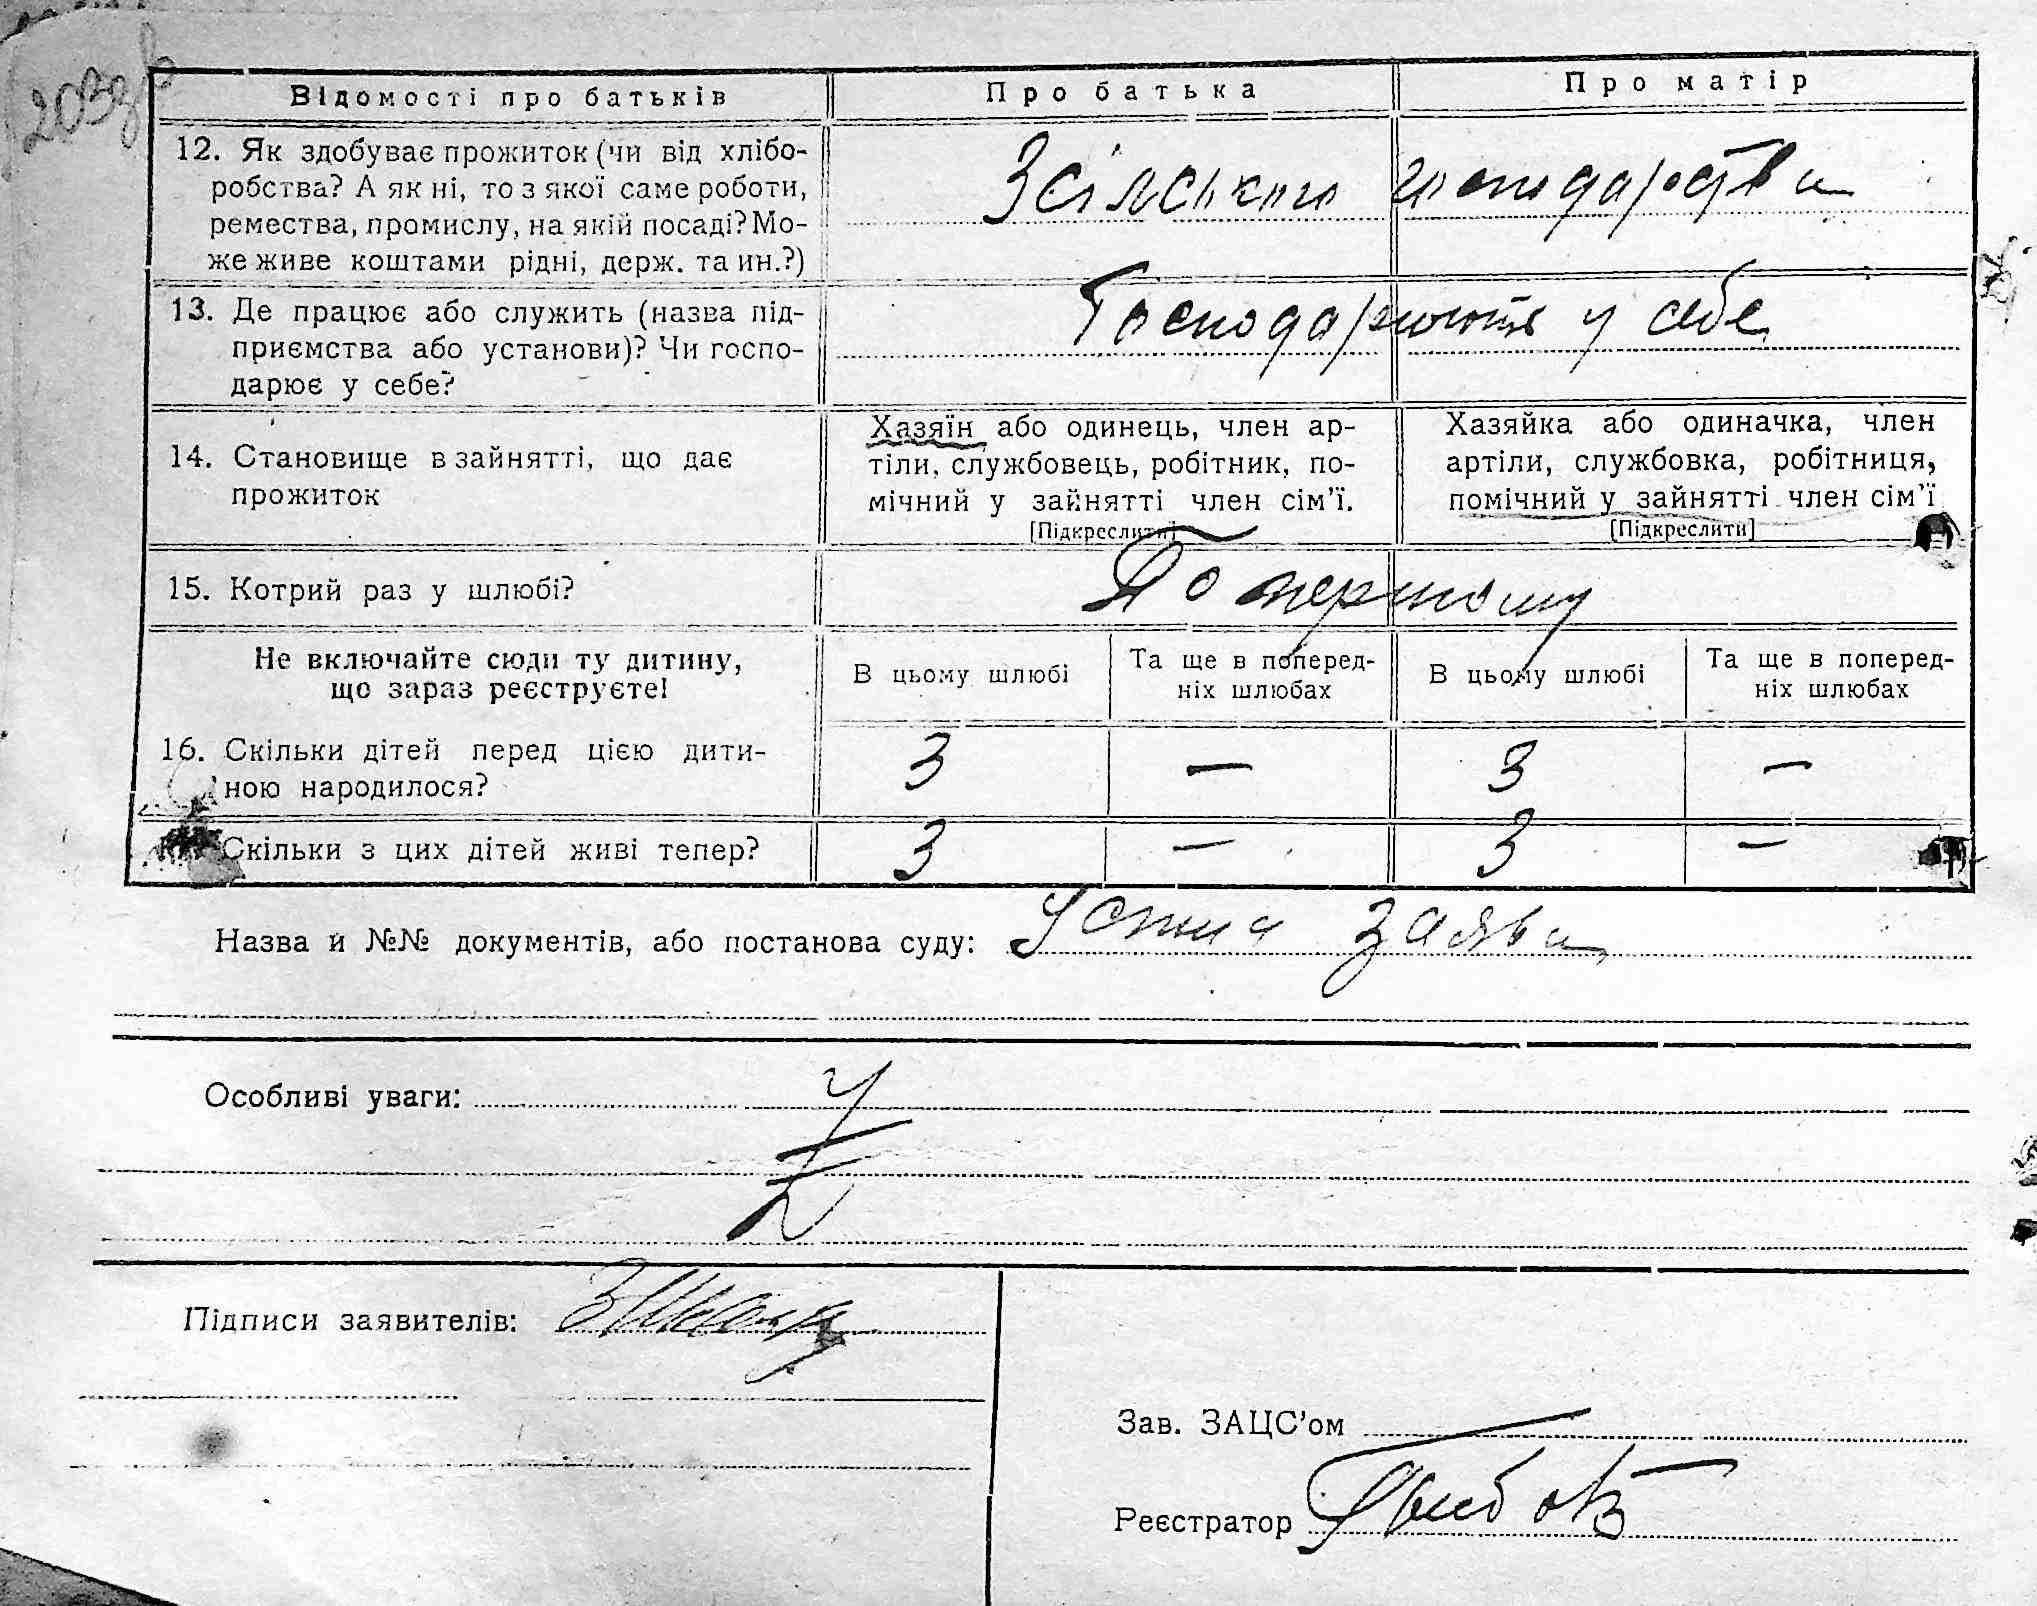 203зв
Відомості про батьків Про батька Про матір
12. Як здобуває прожиток (чи від хлібо-
робства? А як ні, то з якої саме роботи,
ремества, промислу, на якій посаді? Мо-
же живе коштами рідні, держ. та ин.?)
З сільського господарства
13. Де працює або служить (назва під-
приємства або установи)? Чи госпо-
дарює у себе?
Господарюють у себе
14. Становище в зайнятті, що дає
прожиток
Хазяїн або одинець, член ар-
тіли, службовець, робітник, по-
мічний у зайнятті член сім'ї.
[Підкреслити]
Хазяйка або одиначка, член
артіли, службовка, робітниця,
помічний у зайнятті член сім'ї
[Підкреслити]
15. Котрий раз у шлюбі?
По першому
Не включайте сюди ту дитину,
що зараз реєструєте!
В цьому шлюбі
Та ще в поперед-
ніх шлюбах
В цьому шлюбі
Та ще в поперед-
ніх шлюбах
16. Скільки дітей перед цією дити-
ною народилося?
3 — 3 —
Скільки з цих дітей живі тепер?
3 — 3 —
Назва й №№ документів, або постанова суду: Устна заява
Особливі уваги:
Підписи заявителів:
Зав. ЗАЦС'ом
Реєстратор